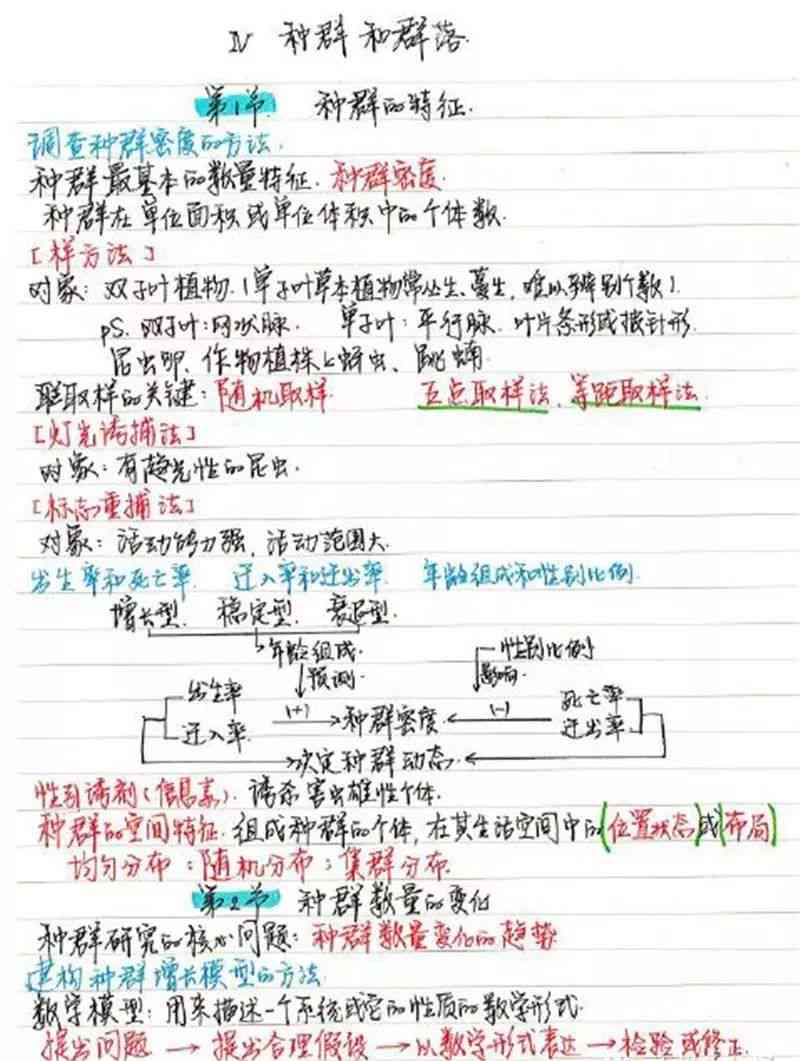 IV 种群和群落
第1节 种群的特征.
调查种群密度的方法.
种群最基本的数量特征. 种群密度.
种群在单位面积或单位体积中的个体数.
[样方法]
对象: 双子叶植物. (单子叶草本植物常丛生、蔓生, 难以辨别个数).
pS. 双子叶: 网状脉. 单子叶: 平行脉. 叶片条形或披针形.
昆虫卵、作物植株上蚜虫、跳蝻.
取样的关键: 随机取样. 五点取样法、等距取样法.
[灯光诱捕法]
对象: 有趋光性的昆虫.
[标志重捕法]
对象: 活动能力强, 活动范围大.
出生率和死亡率. 迁入率和迁出率. 年龄组成和性别比例.
增长型. 稳定型. 衰退型.
年龄组成. 性别比例
预测. 影响.
出生率 死亡率
迁入率. (+) 种群密度 (-) 迁出率.
决定种群动态.
性引诱剂(信息素). 诱杀害虫雄性个体.
种群的空间特征. 组成种群的个体, 在其生活空间中的(位置状态)或(布局)
均匀分布; 随机分布; 集群分布.
第2节 种群数量的变化
种群研究的核心问题: 种群数量变化的趋势
建构种群增长模型的方法.
数学模型: 用来描述一个系统或它的性质的数学形式.
提出问题 → 提出合理假设 → 以数学形式表达 → 检验或修正.